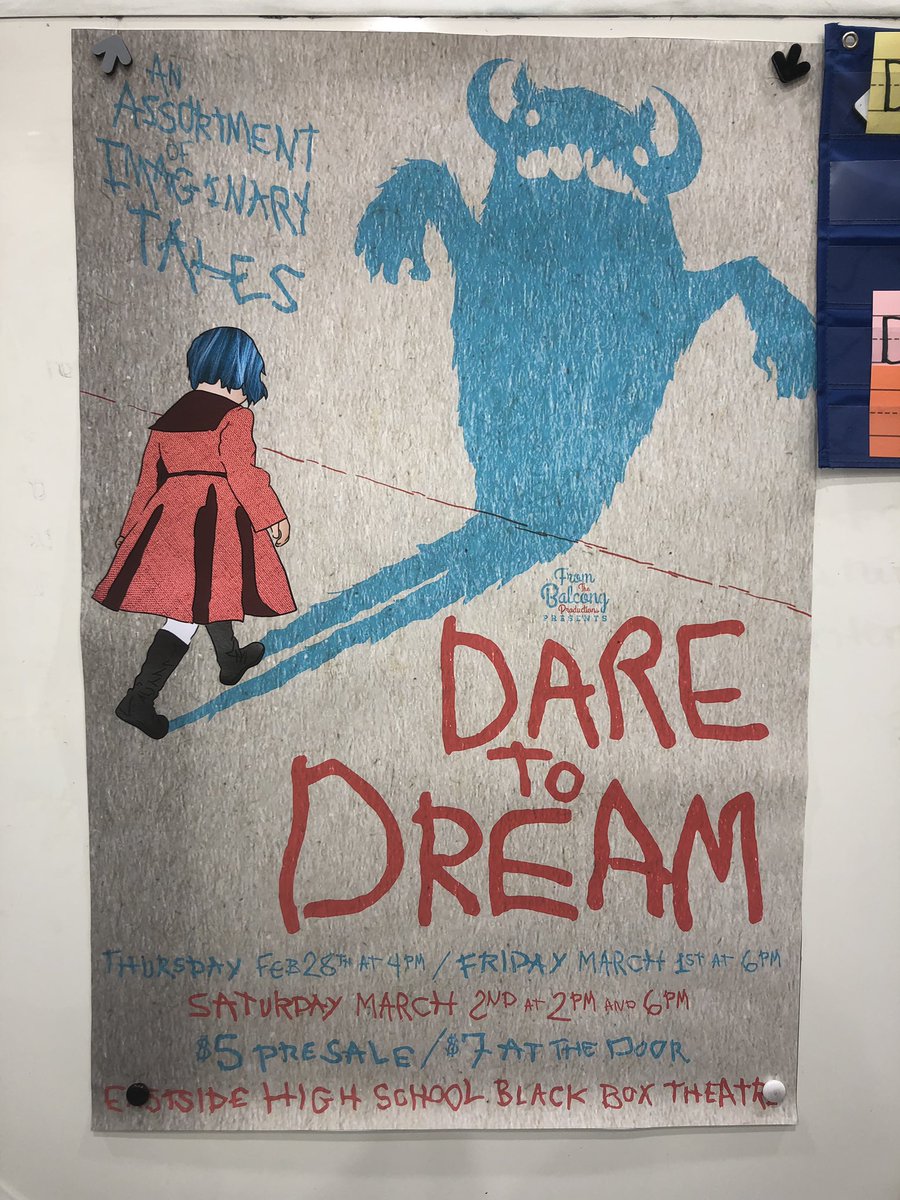 AN
ASSORTMENT
OF
IMAGINARY
TALES
From
The
Balcony
Productions
PRESENTS
DARE
TO
DREAM
THURSDAY FEB 28TH AT 4PM / FRIDAY MARCH 1ST AT 6PM
SATURDAY MARCH 2ND AT 2PM AND 6PM
$5 PRESALE / $7 AT THE DOOR
EASTSIDE HIGH SCHOOL BLACK BOX THEATRE
D
D